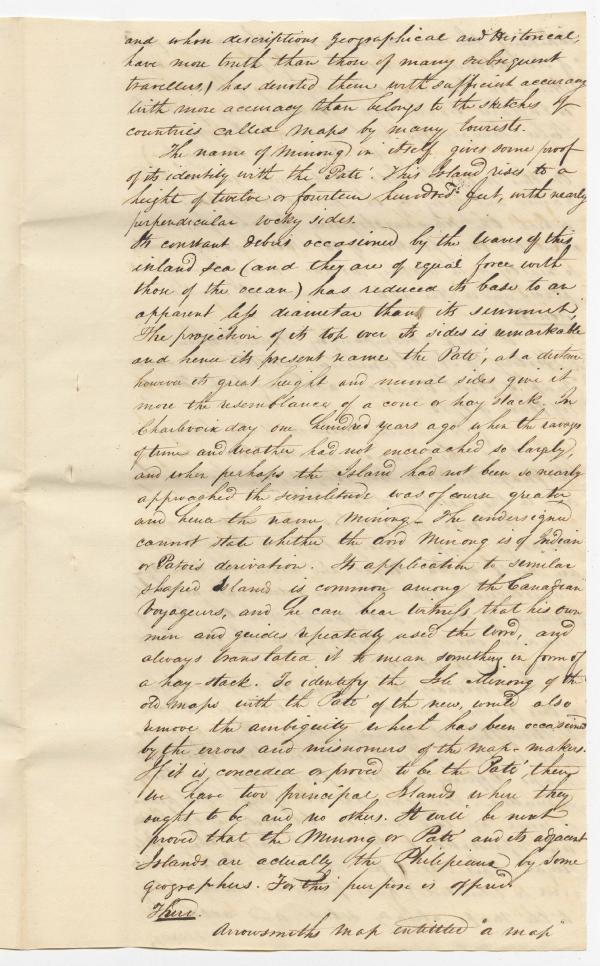 and whose descriptions Geographical and Historical,
have more truth than those of many subsequent
travellers,) has denoted them with sufficient accuracy
with more accuracy than belongs to the sketches of
countries called maps by many tourists.
The name of Minong in itself gives some proof
of its identity with the Paté. This Island rises to a
height of twelve or fourteen hundred feet, with nearly
perpendicular rocky sides.
Its constant debris occasioned by the waves of this
inland sea (and they are of equal force with
those of the ocean) has reduced its base to an
apparent less diameter than its summit,
The projection of its top over its sides is remarkable
and hence its present name the Paté, at a distance
however its great height and mural sides give it
more the resemblance of a cone or hay stack. In
Charlevoix day one hundred years ago when the ravages
of time and weather had not encroached so largely,
and when perhaps the Island had not been so nearly
approached the similitude was of course greater
and hence the name Minong - The undersigned
cannot state whether the word Minong is of Indian
or Patois derivation. Its application to similar
shaped Island is common among the Canadian
Voyageurs, and he can bear witness that his own
men and guides repeatedly used the word, and
always translated it to mean something in form of
a hay-stack. To identify the Isle Minong of the
old maps with the Paté of the new, would also
remove the ambiguity which has been occasioned
by the errors and misnomers of the map-makers.
If it is conceded or proved to be the Paté, then
we have two principal Islands where they
ought to be and no others. It will be next
proved that the Minong or Paté and its adjacent
Islands are actually the Philipeaux by some
geographers. For this purpose is offered
Third.
Arrowsmiths map entitled "a map"